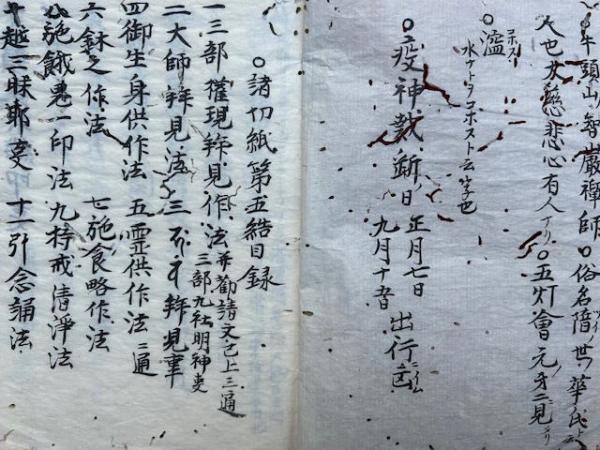 牛頭山智巖禅師 ○俗名隋ノ世ノ華氏
人也大慈悲心有人ナリ ○五灯會元ノ才二見
○濫 コボス
水ナトヲコボスト云字也
○疫神裁断ノ日 正月七日
九月十 出行凶
○諸切紙第五結目録
一三部権現拝見作法 并勧請文已上三通
三部九社明神叓
二大師拝見法 三 拝見叓
四御生身供作法 五霊供作法二通
六鉢之作法 七施食略作法
八施餓鬼一印法 九持戒清浄法
十越三昧耶叓 十一引念誦法